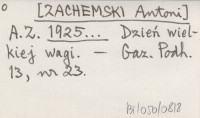 [ZACHEMSKI Antoni]
A.Z. 1925... Dzień wiel-
kiej wagi. — Gaz. Podh.
13, nr 23.